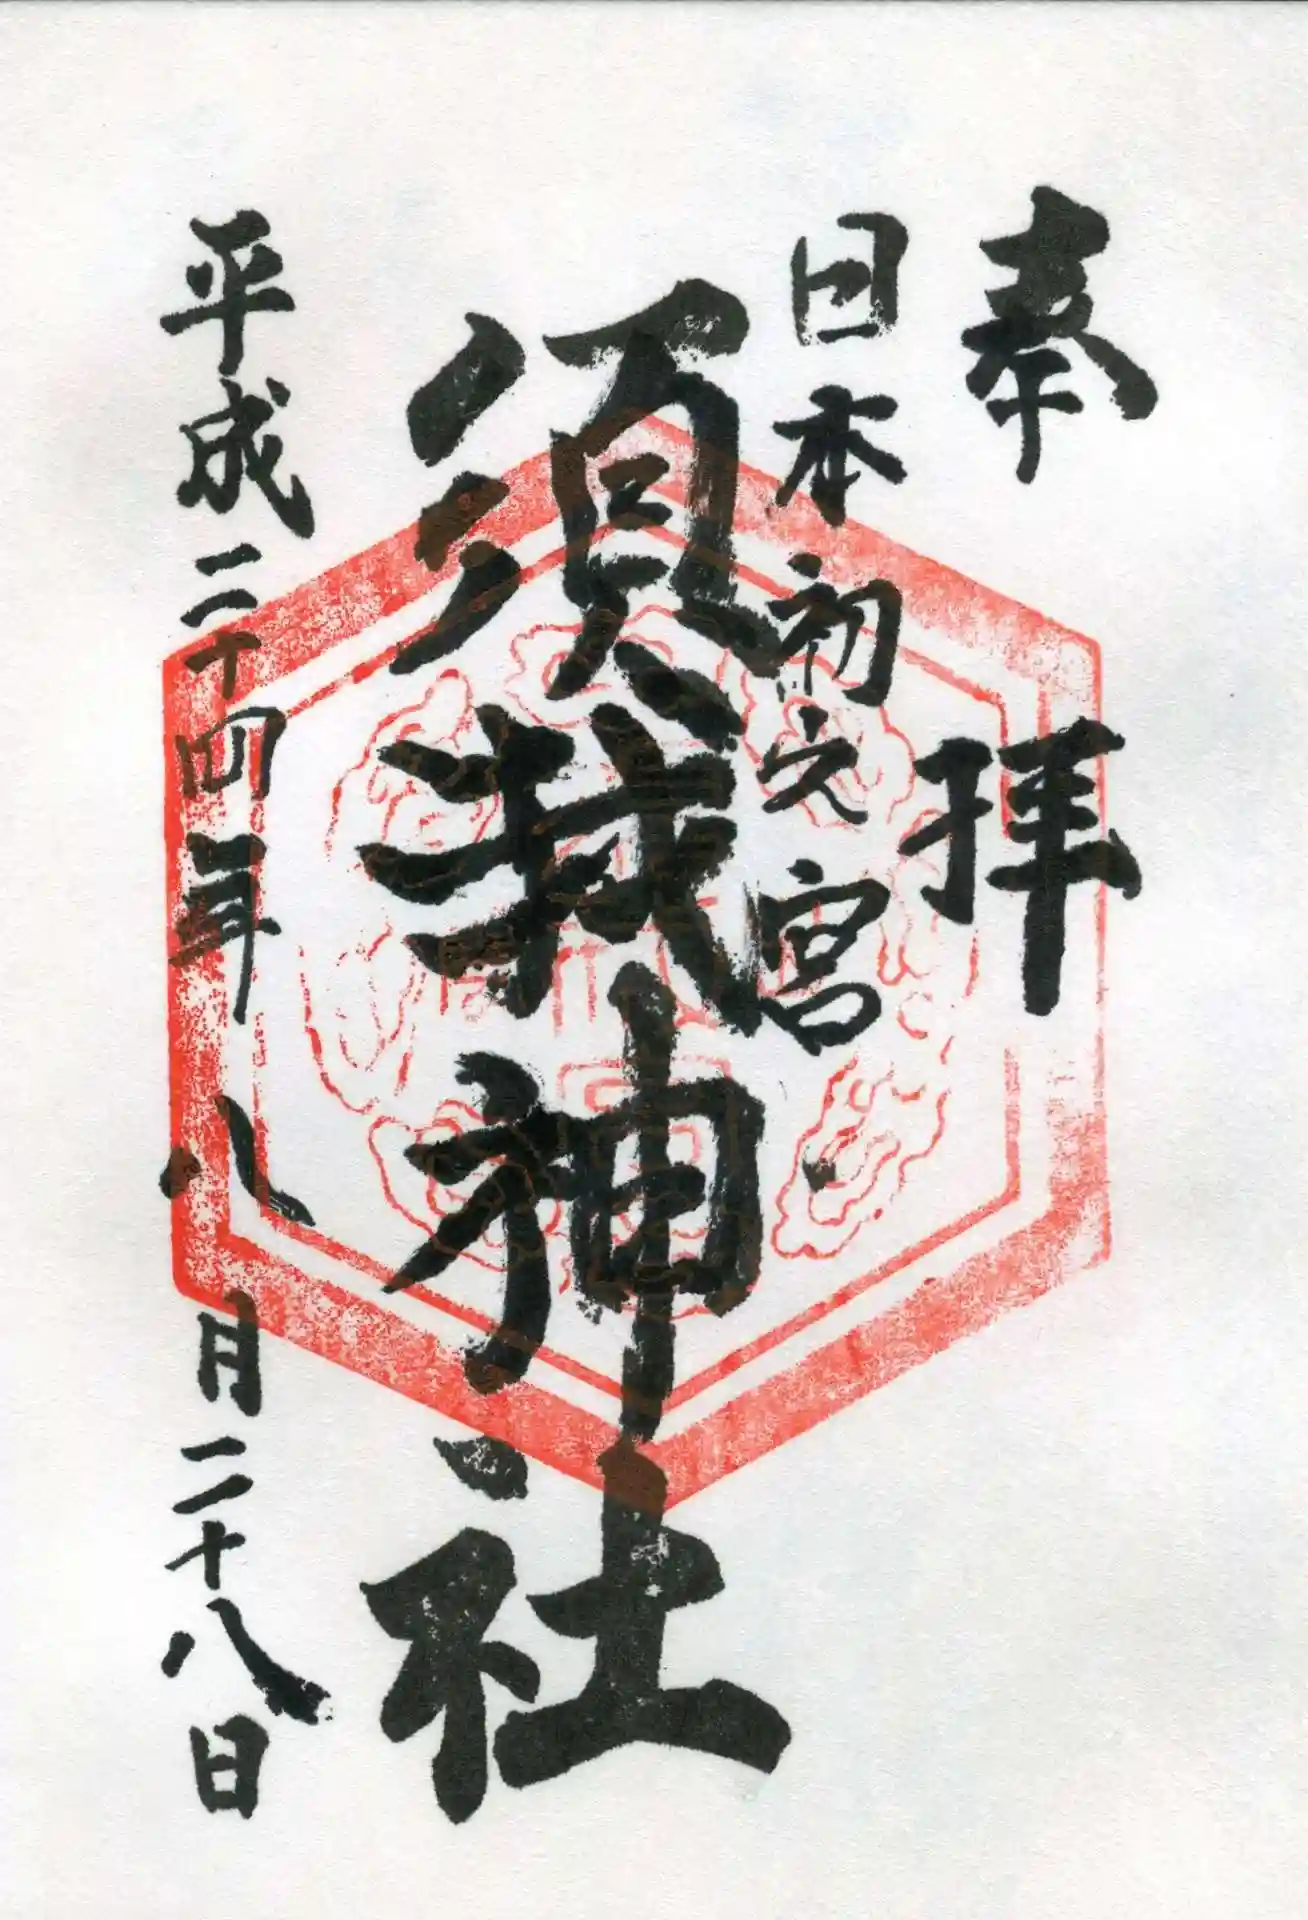 奉拝
日本初之宮
須我神社
平成二十四年八月二十八日